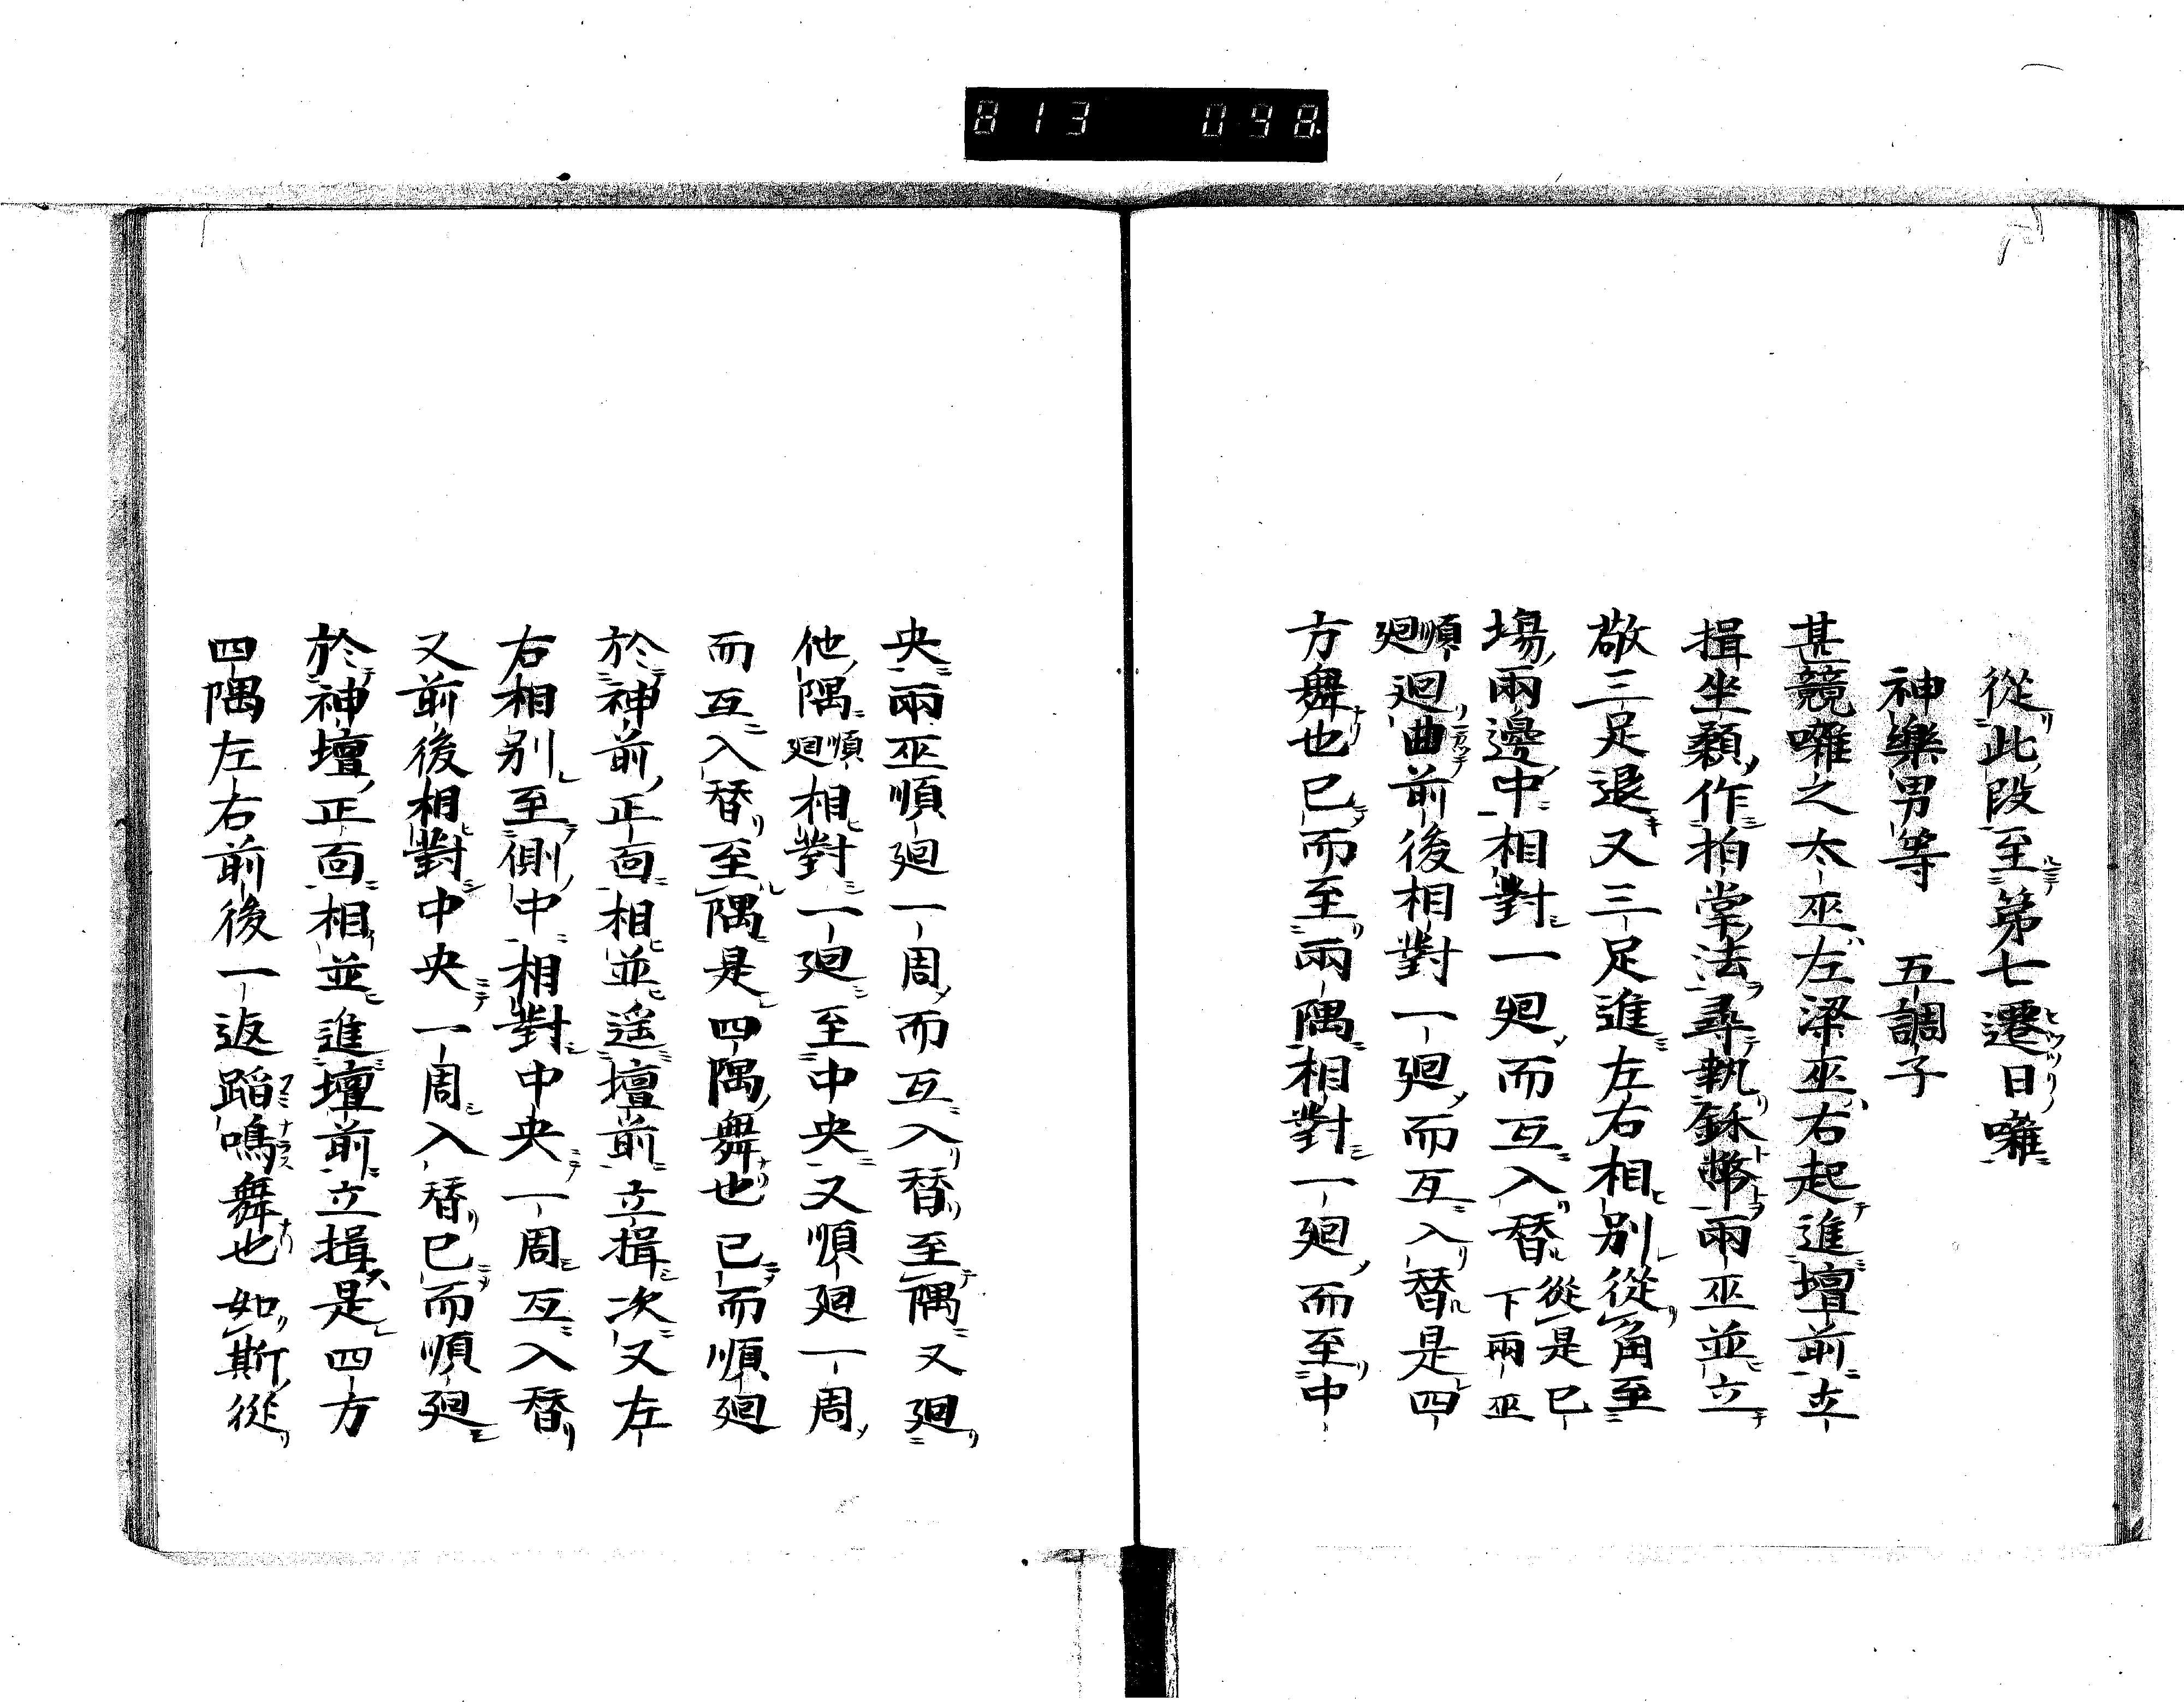 813 098.
從此段至第七遷日囃
神樂男等 五調子
甚競囃之太巫左梁巫右起進壇前立
揖坐顙作拍掌法尋執鉌幣兩巫並立
敬三足退又三足進左右相別從角至
場兩邊中相對一廻而互入替從是已下兩巫
順廻迴曲前後相對一廻而互入替是四
方舞也已而至兩隅相對一廻而至中
央兩巫順廻一周而互入替至隅又廻
他隅順廻相對一廻至中央又順廻一周
而互入替至隅是四隅舞也已而順廻
於神前正面相並遥壇前立揖次又左
右相別至側中相對中央一周互入替
又前後相對中央一周入替已而順廻
於神壇正面相並進壇前立揖是四方
四隅左右前後一返蹈鳴舞也如斯從